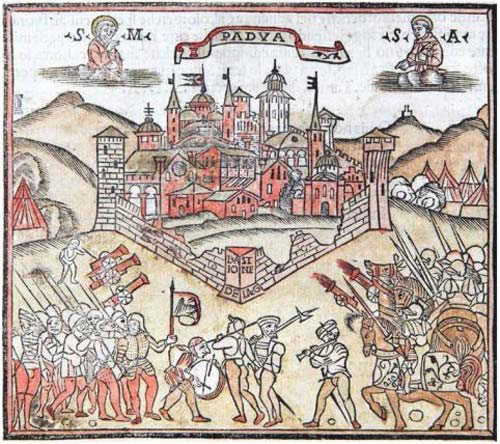 ·S· M·
PADVA
·S· A·
BA
STI
ONE
DE LAG